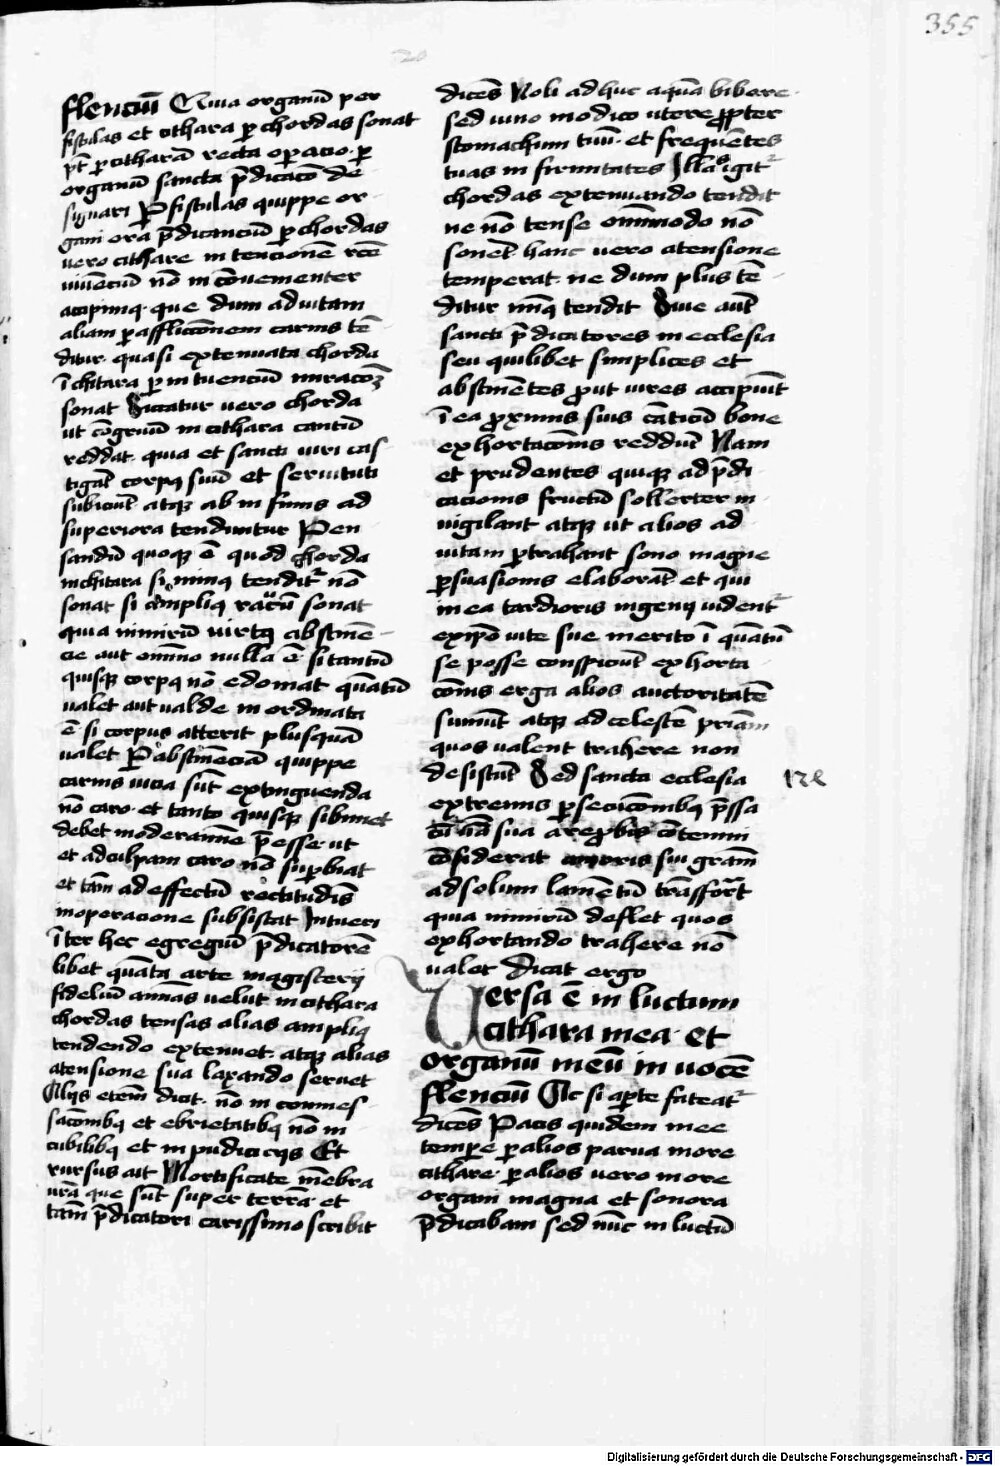 355
flenciū Quia organū per
fistulas et cithara ꝑ chordas sonat
pt̄ ꝑ citharā recta operacio ꝑ
organū sancta p̄dicacō de
signari Per fistulas quippe or
gani ora p̄dicanciū ꝑ chordas
vero cithare intencionē rcē
viuenciū nō inconuenienter
accipimꝯ que dum ad vitam
aliam ꝑ afflictionem carnis tē
ditur quasi extenuata chorda
ī chitara ꝑ intuenciū
sonat Siccatur vero chorda
ut cōgruū in cithara cantū
reddat quia et sancti viri cas
tigāt corpꝯ suū et seruituti
subiciūt atqꝫ ab infimis ad
superiora tenduntur Pen
sandū quoqꝫ ē quod chorda
in chitara si minꝯ tenditur nō
sonat si ampliꝯ raucū sonat
quia nimirū virtꝯ abstinē
cie aut omīno nulla ē si tantū
quisqꝫ corpꝯ nō edomat quātū
valet aut valde inordinata
ē si corpus atterit plusquā
valet Per abstinenciā quippe
carnis vicia sūt extinguenda
nō caro et tanto quisqꝫ sibimet
debet moderamine p̄esse ut
et ad culpam caro nō suꝑbiat
et tam̄ ad effectū rectitudīs
in operacione subsistat Intueri
īter hec egregiū p̄dicatorē
libet quāta arte magisterij
fideliū animas velut in cithara
chordas tensas alias ampliꝯ
tendendo extenuet atqꝫ alias
a tensione sua laxando seruet
Alijs etem̄ dicit nō in comes
sacōnibꝯ et ebrietatibꝯ nō in
cubilibꝯ et inpudicicijs Et
rursus ait Mortificate mēbra
vrā que sūt super terrā et
tam̄ p̄dicatori carissimo scribit
dicēs Noli adhuc aquā bibere
sed vino modico utere ꝓpter
stomachum tuū et frequētes
tuas infirmitates Illas igitur
chordas extenuando tendit
ne nō tense omīmodo nō
sonēt hanc vero a tensione
temperat ne dum plus tē
ditur minꝯ tendit Siue aut̄
sancti p̄dicatores in ecclesia
seu quilibet simplices et
abstinētes ꝓut vires accipiūt
ī ea ꝓximis suis cāticū bone
exhortacōnis reddūt Nam
et prudentes quiqꝫ ad p̄di
cacionis fructū sollerter in
uigilant atqꝫ ut alios ad
vitam ꝑtrahant sono magne
ꝑsuasionis elaborāt et qui
in ea tardioris ingenij vident̄
ex ip̄o vite sue merito ī quātū
se posse conspiciūt exhorta
cōnis erga alios auctoritatē
sumūt atqꝫ ad celestē p̄riam
quos valent trahere non
desistūt Sed sancta ecclesia
extremis ꝑsecucōnibꝯ p̄ssa
cū uā sua a reprobis cōtemni
cōsiderat sui gram̄
ad solum lamētū trāsfort
quia nimirū deflet quos
exhortando trahere nō
valet Dicat ergo
Versa ē in luctum
cithara mea et
organū meū in vocē
flenciū Ac si aꝑte fateat̄
dicēs Pacis quidem mee
tempe ꝑ alios parua more
cithare ꝑ alios vero more
organi magna et sonora
p̄dicabam sed nūc in luctū
Digitalisierung gefördert durch die Deutsche Forschungsgemeinschaft - DFG